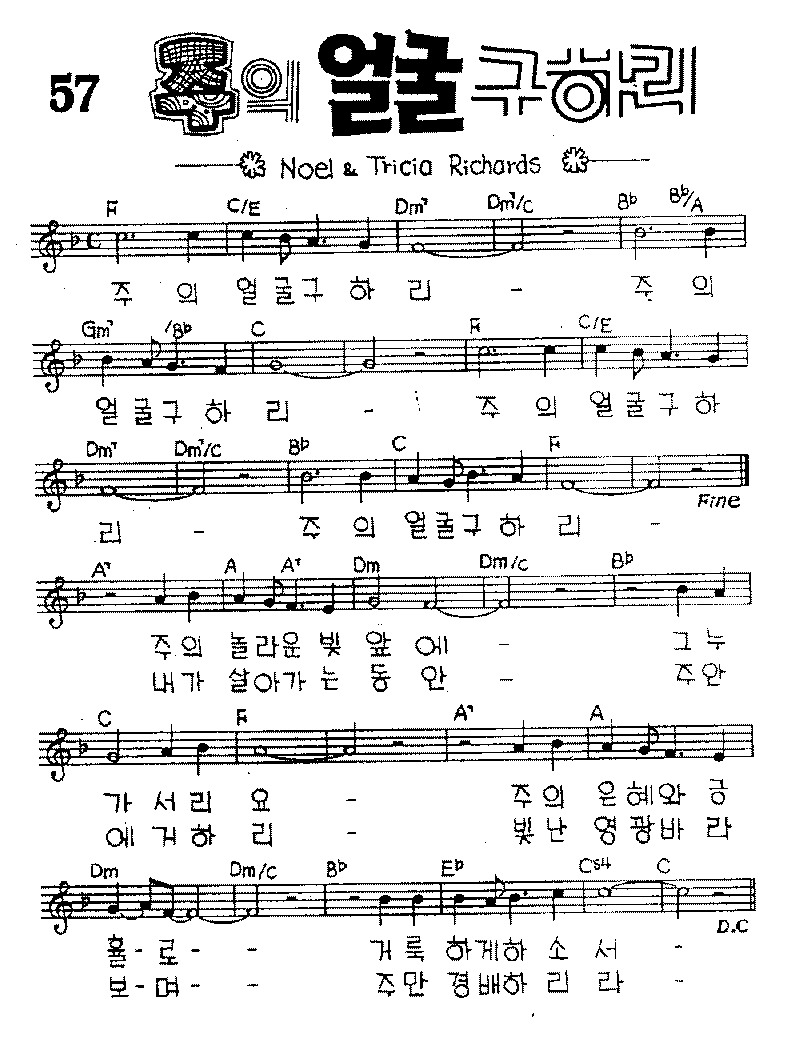 57 주의 얼굴 구하리
Noel & Tricia Richards
F C/E Dm7 Dm7/C Bb Bb/A
주 의 얼굴구 하 리 - 주 의
Gm7 /Bb C F C/E
얼굴구 하 리 - 주 의 얼굴구 하
Dm7 Dm7/C Bb C F
Fine
리 - 주 의 얼굴구 하 리 -
A7 A A7 Dm Dm/C Bb
주의 놀라운 빛 앞 에 - 그 누
내가 살아가는 동 안 - 주안
C F A7 A
가 서리 요 - 주의 은혜와 긍
에 거하 리 - 빛난 영광바라
Dm Dm/C Bb Eb Csu4 C
D.C
휼-로- - 거룩 하게하 소 서 -
보-며- - 주만 경배하 리 라 -